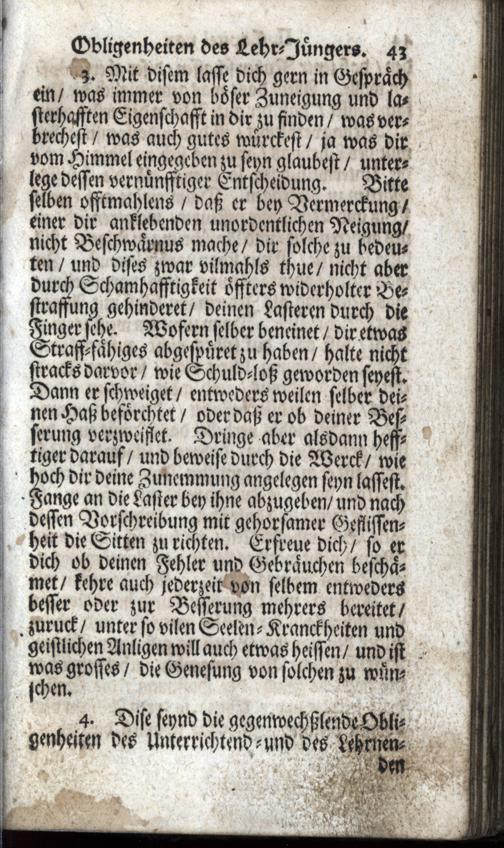 Obligenheiten des Lehr-Jüngers. 43
3. Mit disem lasse dich gern in Gespräch
ein / was immer von böser Zuneigung und la-
sterhafften Eigenschafft in dir zu finden / was ver-
brechest / was auch gutes würckest / ja was dir
vom Himmel eingegeben zu seyn glaubest / unter-
lege dessen vernünfftiger Entscheidung. Bitte
selben offtmahlens / daß er bey Vermerckung /
einer dir anklebenden unordentlichen Neigung /
nicht Beschwärnus mache / dir solche zu bedeu-
ten / und dises zwar vilmahls thue / nicht aber
durch Schamhafftigkeit öffters widerholter Be-
straffung gehinderet / deinen Lasteren durch die
Finger sehe. Wofern selber beneinet / dir etwas
Straff-fähiges abgespüret zu haben / halte nicht
stracks darvor / wie Schuld-loß geworden seyest.
Dann er schweiget / entweders weilen selber dei-
nen Haß beförchtet / oder daß er ob deiner Bes-
serung verzweiflet. Dringe aber alsdann heff-
tiger darauf / und beweise durch die Werck / wie
hoch dir deine Zunemmung angelegen seyn lassest.
Fange an die Laster bey ihne abzugeben / und nach
dessen Vorschreibung mit gehorsamer Geflissen-
heit die Sitten zu richten. Erfreue dich / so er
dich ob deinen Fehler und Gebräuchen beschä-
met / kehre auch jederzeit von selbem entweders
besser oder zur Besserung mehrers bereitet /
zuruck / unter so vilen Seelen-Kranckheiten und
geistlichen Anligen will auch etwas heissen / und ist
was grosses / die Genesung von solchen zu wün-
schen.
4. Dise seynd die gegenwechßlende Obli-
genheiten des Unterrichtend-und des Lehrnen-
den